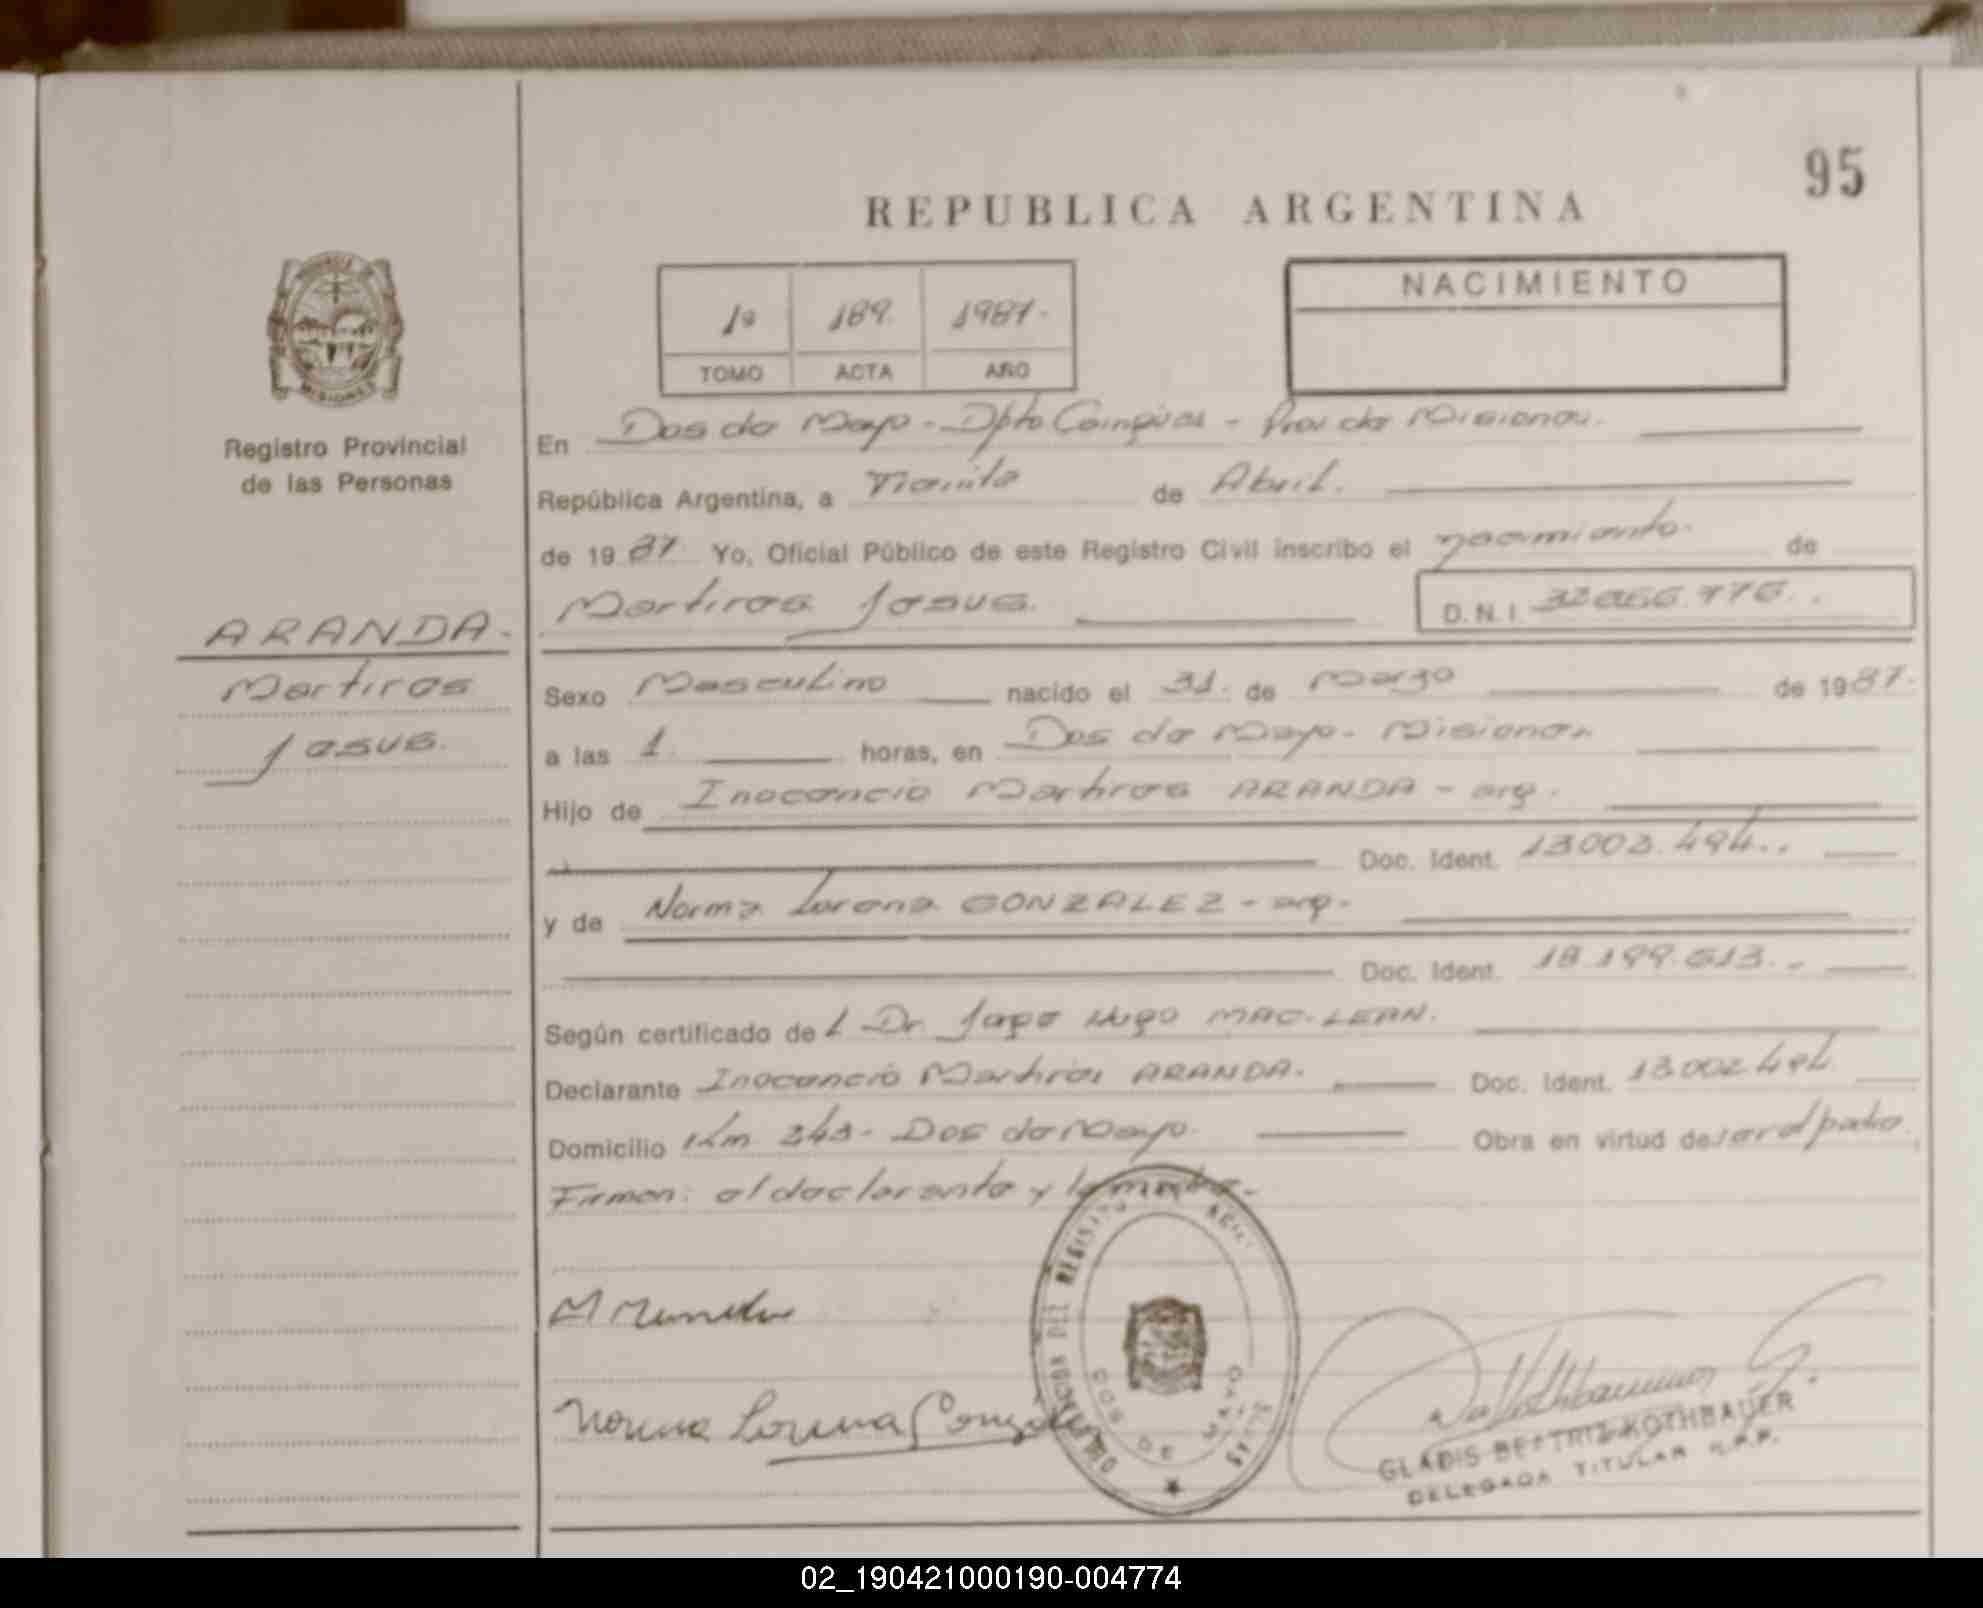 95
REPUBLICA ARGENTINA
NACIMIENTO
1º 189 1987.
TOMO ACTA AÑO
MISIONES
Registro Provincial
de las Personas
En Dos de Mayo - Dpto Cainguas - Prov de Misiones.
República Argentina, a Treinta de Abril.
de 1987. Yo, Oficial Público de este Registro Civil inscribo el nacimiento. de
Martires Jesus. D.N.I.
ARANDA.
Martires
Jesus.
Sexo Masculino nacido el 31. de Marzo de 1987.
a las 1. horas, en Dos de Mayo - Misiones
Hijo de Inocencio Martires ARANDA - arg.
Doc. Ident. 13.002.494..
y de Norma Lorena GONZALEZ - arg.
Doc. Ident. 18.199.613..
Según certificado del Dr. Jorge Hugo MAC-LEAN.
Declarante Inocencio Martires ARANDA. Doc. Ident. 13.002.494.
Domicilio Km 243 - Dos de Mayo. Obra en virtud de ser el padre.
Firman: el declarante y la madre.
Norma Lorena Gonzalez
DELEGACION DEL REGISTRO
DOS DE MAYO
GLADIS BEATRIZ KOTHBAUER
DELEGADA TITULAR R.P.P.
02_190421000190-004774